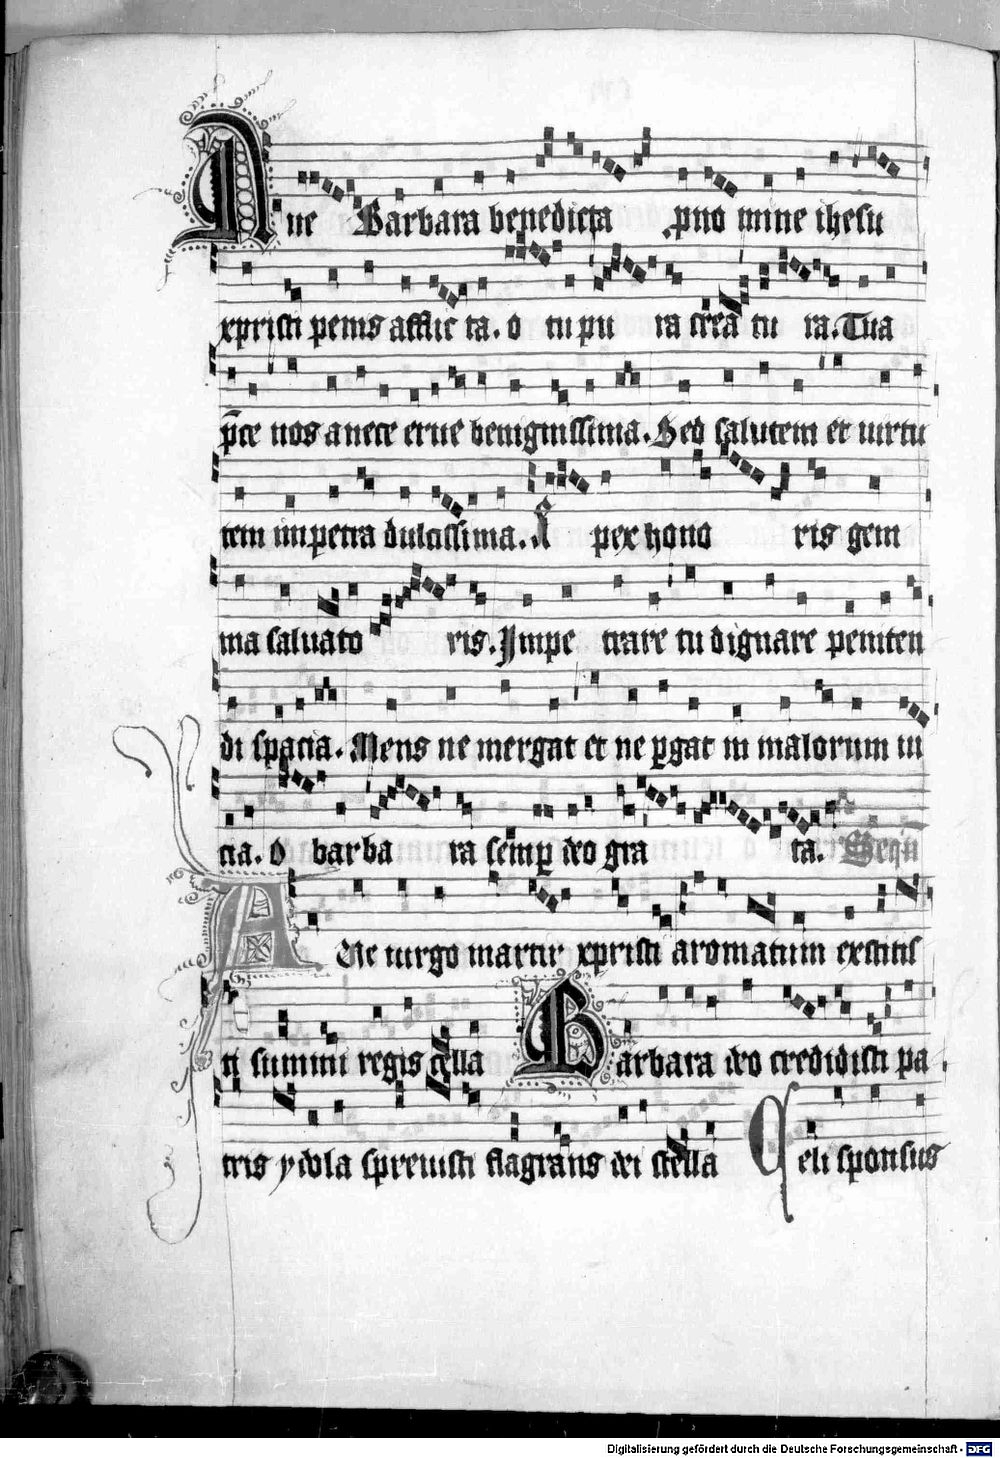 Aue Barbara benedicta pno mine ihesu
xpristi penis afflic ta. o tu pu ra crea tu ra. Tua
p̄ce nos a nece erue benignissima. Sed salutem et uirtu
tem impetra dulcissima. A pex hono ris gem
ma saluato ris. Impe trare tu dignare peniten
di spacia. Mens ne mergat et ne pgat in malorum in
cia. O barba ra semp deo gra ta. Sequ
A Ue uirgo martir xpristi aromatum extitis
ti summi regis cella Barbara deo credidisti pa
tris ydola spreuisti flagrans dei stella Celi sponsus
Digitalisierung gefördert durch die Deutsche Forschungsgemeinschaft - DFG